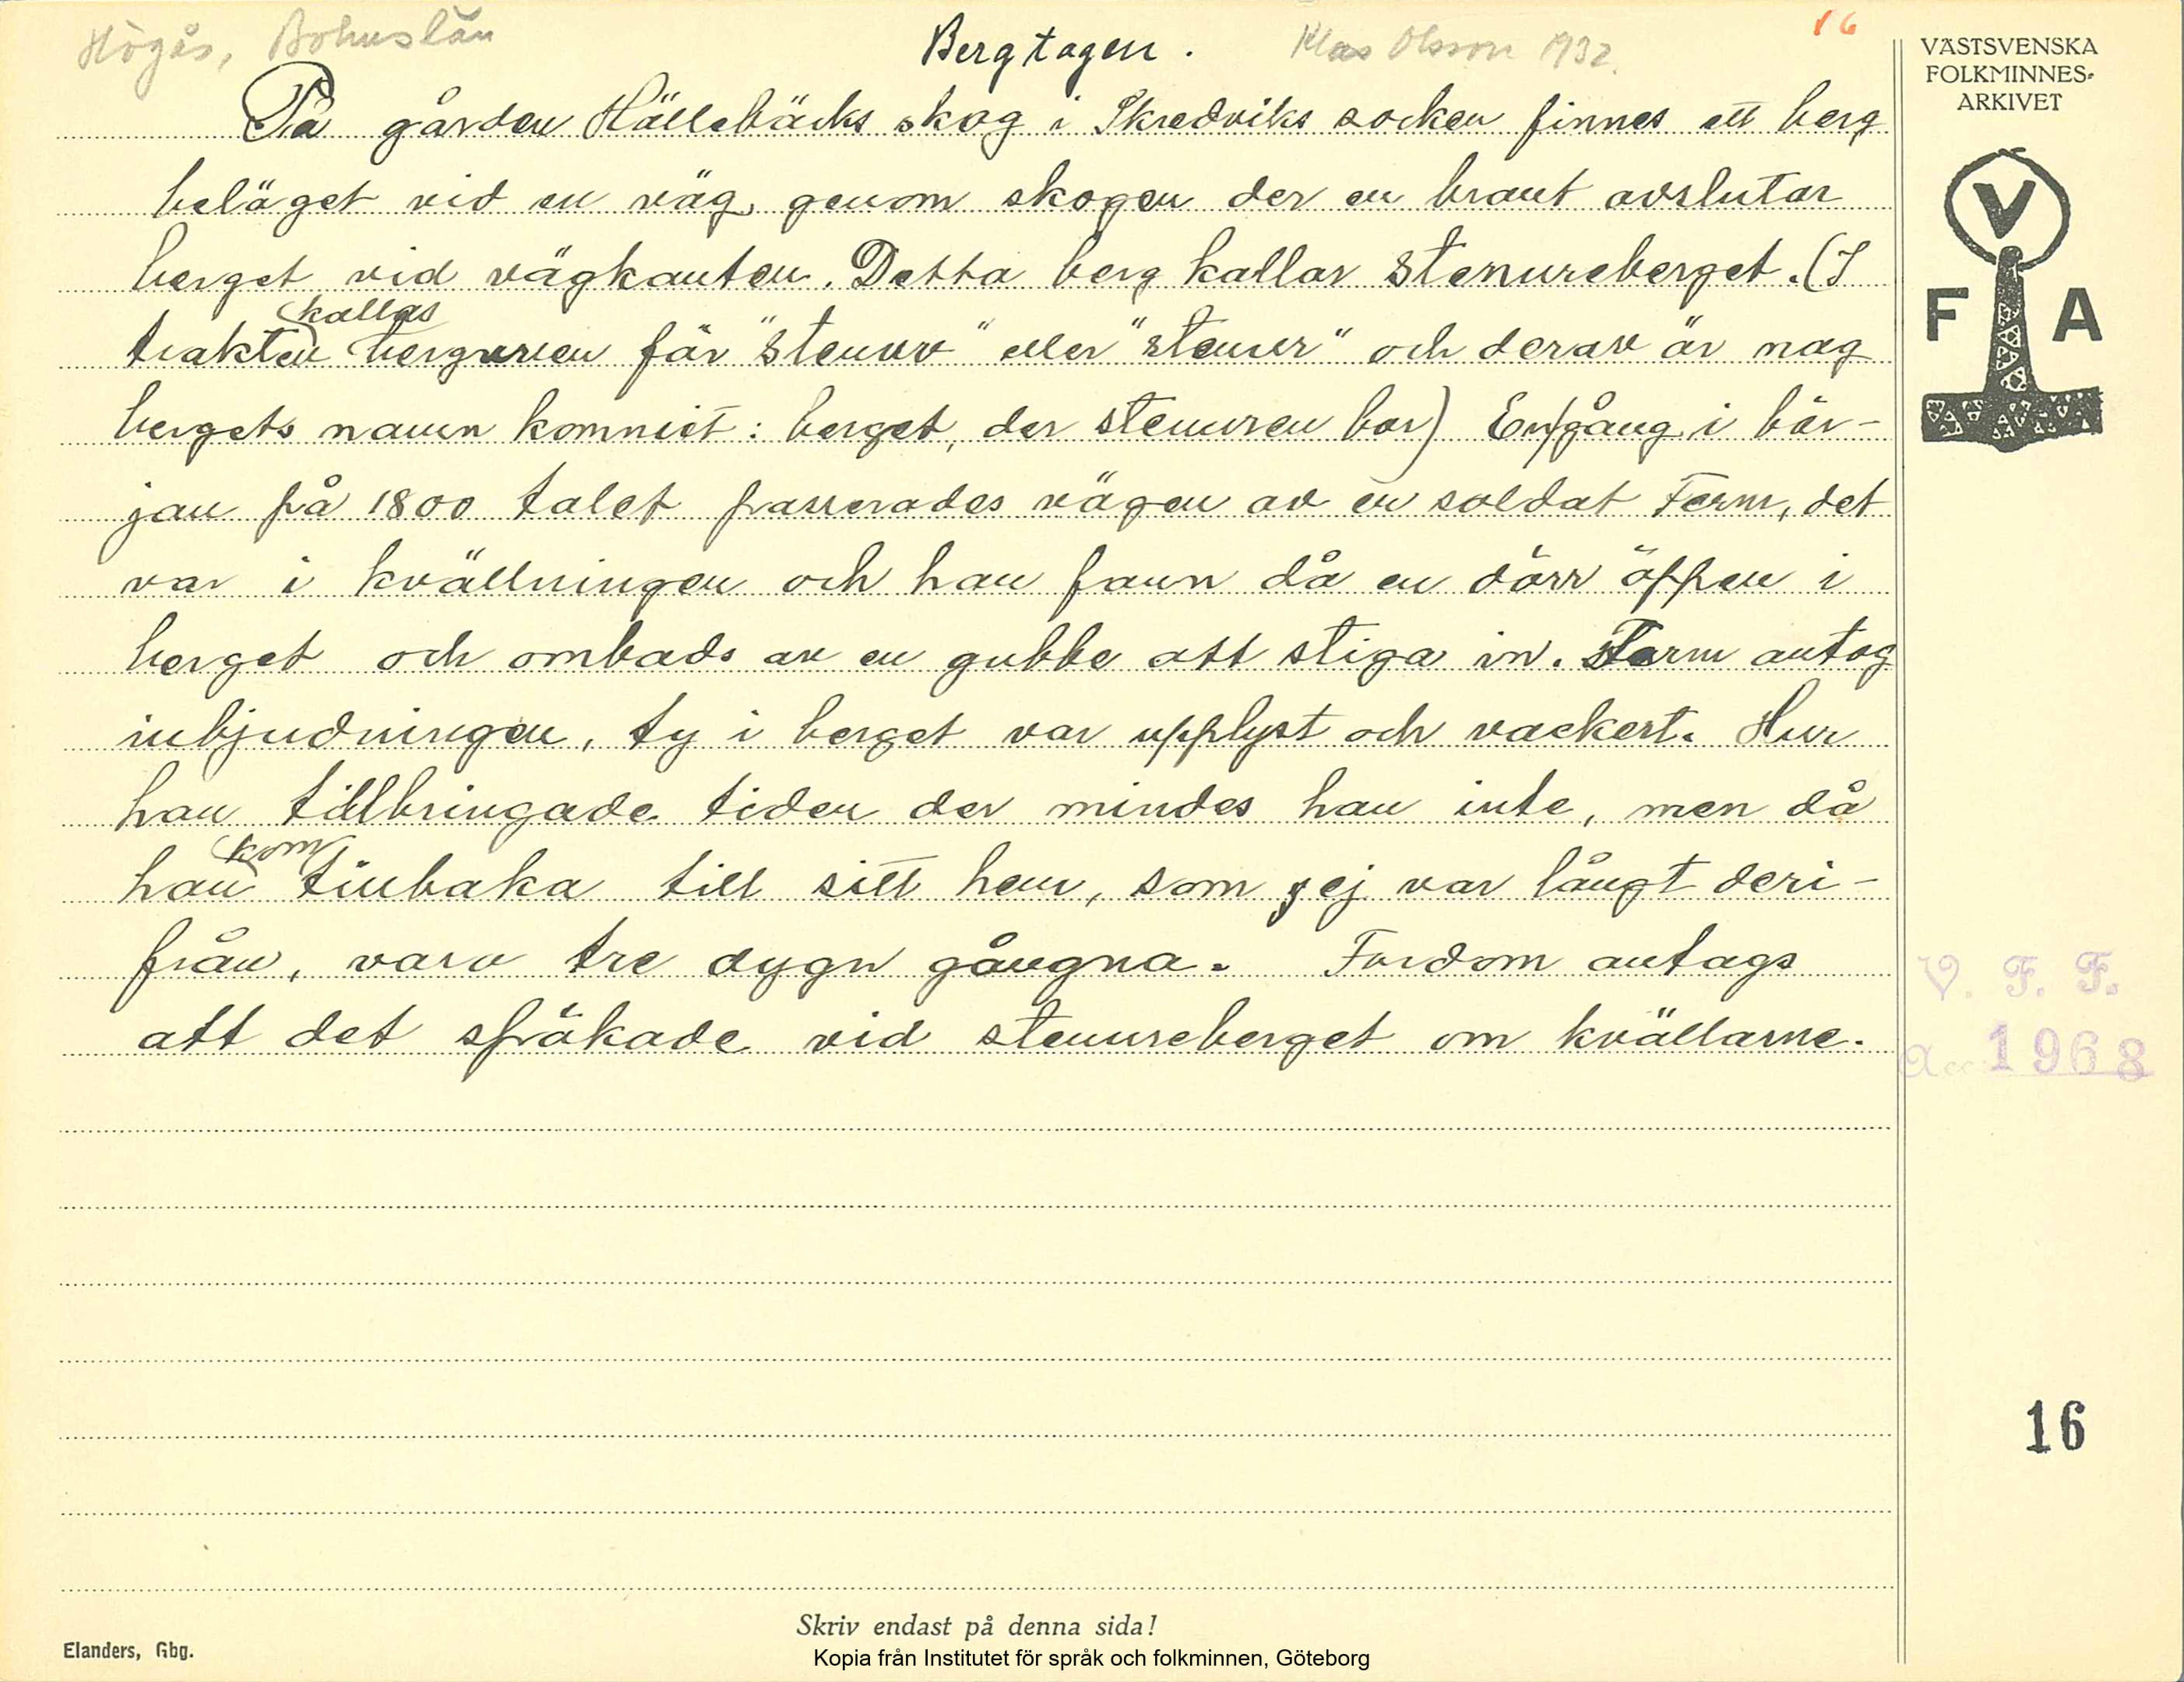 Högås, Bohuslän
Bergtagen.
Klas Olsson 1932.
16
På gården Hällebäcks skog i Skredviks socken finnes ett berg
beläget vid en väg, genom skogen der en brant avslutar
berget vid vägkanten. Detta berg kallar Stenureberget. (I
kallas
trakten berguven för "Stenuv" eller "stenur" och derav är nog
bergets namn kommit: berget, der stenuren bor) En gång i bör-
jan på 1800 talet passerades vägen av en soldat Ferm, det
var i kvällningen och han fann då en dörr öppen i
berget och ombads av en gubbe att stiga in. Ferm antog
inbjudningen, ty i berget var upplyst och vackert. Hur
han tillbringade tiden der mindes han inte, men då
kom
han tillbaka till sitt hem, som ej var långt deri-
från, varo tre dygn gångna. Fordom antags
att det spökade vid stenureberget om kvällarne.
VÄSTSVENSKA
FOLKMINNES-
ARKIVET
V
F A
V. F. F.
Acc 1968
16
Skriv endast på denna sida!
Elanders, Gbg.
Kopia från Institutet för språk och folkminnen, Göteborg